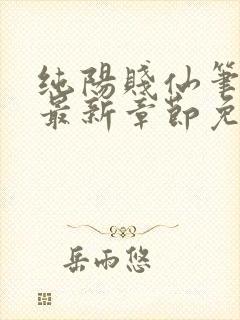 純陽賤仙筆
最新章節免
岳雨悠